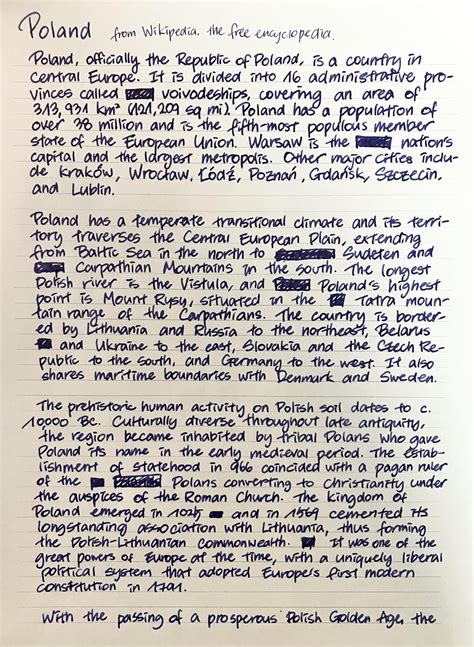 Poland from Wikipedia, the free encyclopedia.
Poland, officially the Republic of Poland, is a country in
central Europe. It is divided into 16 administrative pro-
vinces called voivodeships, covering an area of
313,931 km² (121,209 sq mi). Poland has a population of
over 38 million and is the fifth-most populous member
state of the European Union. Warsaw is the nation's
capital and the largest metropolis. Other major cities inclu-
de Kraków, Wrocław, Łódź, Poznań, Gdańsk, Szczecin,
and Lublin.
Poland has a temperate transitional climate and its terri-
tory traverses the Central European Plain, extending
from Baltic Sea in the north to Sudeten and
Carpathian Mountains in the south. The longest
Polish river is the Vistula, and Poland's highest
point is Mount Rysy, situated in the Tatra moun-
tain range of the Carpathians. The country is border-
ed by Lithuania and Russia to the northeast, Belarus
and Ukraine to the east, Slovakia and the Czech Re-
public to the south, and Germany to the west. It also
shares maritime boundaries with Denmark and Sweden.
The prehistoric human activity on Polish soil dates to c.
10000 BC. Culturally diverse throughout late antiquity,
the region became inhabited by tribal Polans who gave
Poland its name in the early medieval period. The estab-
lishment of statehood in 966 coincided with a pagan ruler
of the Polans converting to Christianity under
the auspices of the Roman Church. The Kingdom of
Poland emerged in 1025 and in 1569 cemented its
longstanding association with Lithuania, thus forming
the Polish-Lithuanian commonwealth. It was one of the
great powers of Europe at the time, with a uniquely liberal
political system that adopted Europe's first modern
constitution in 1791.
With the passing of a prosperous Polish Golden Age, the